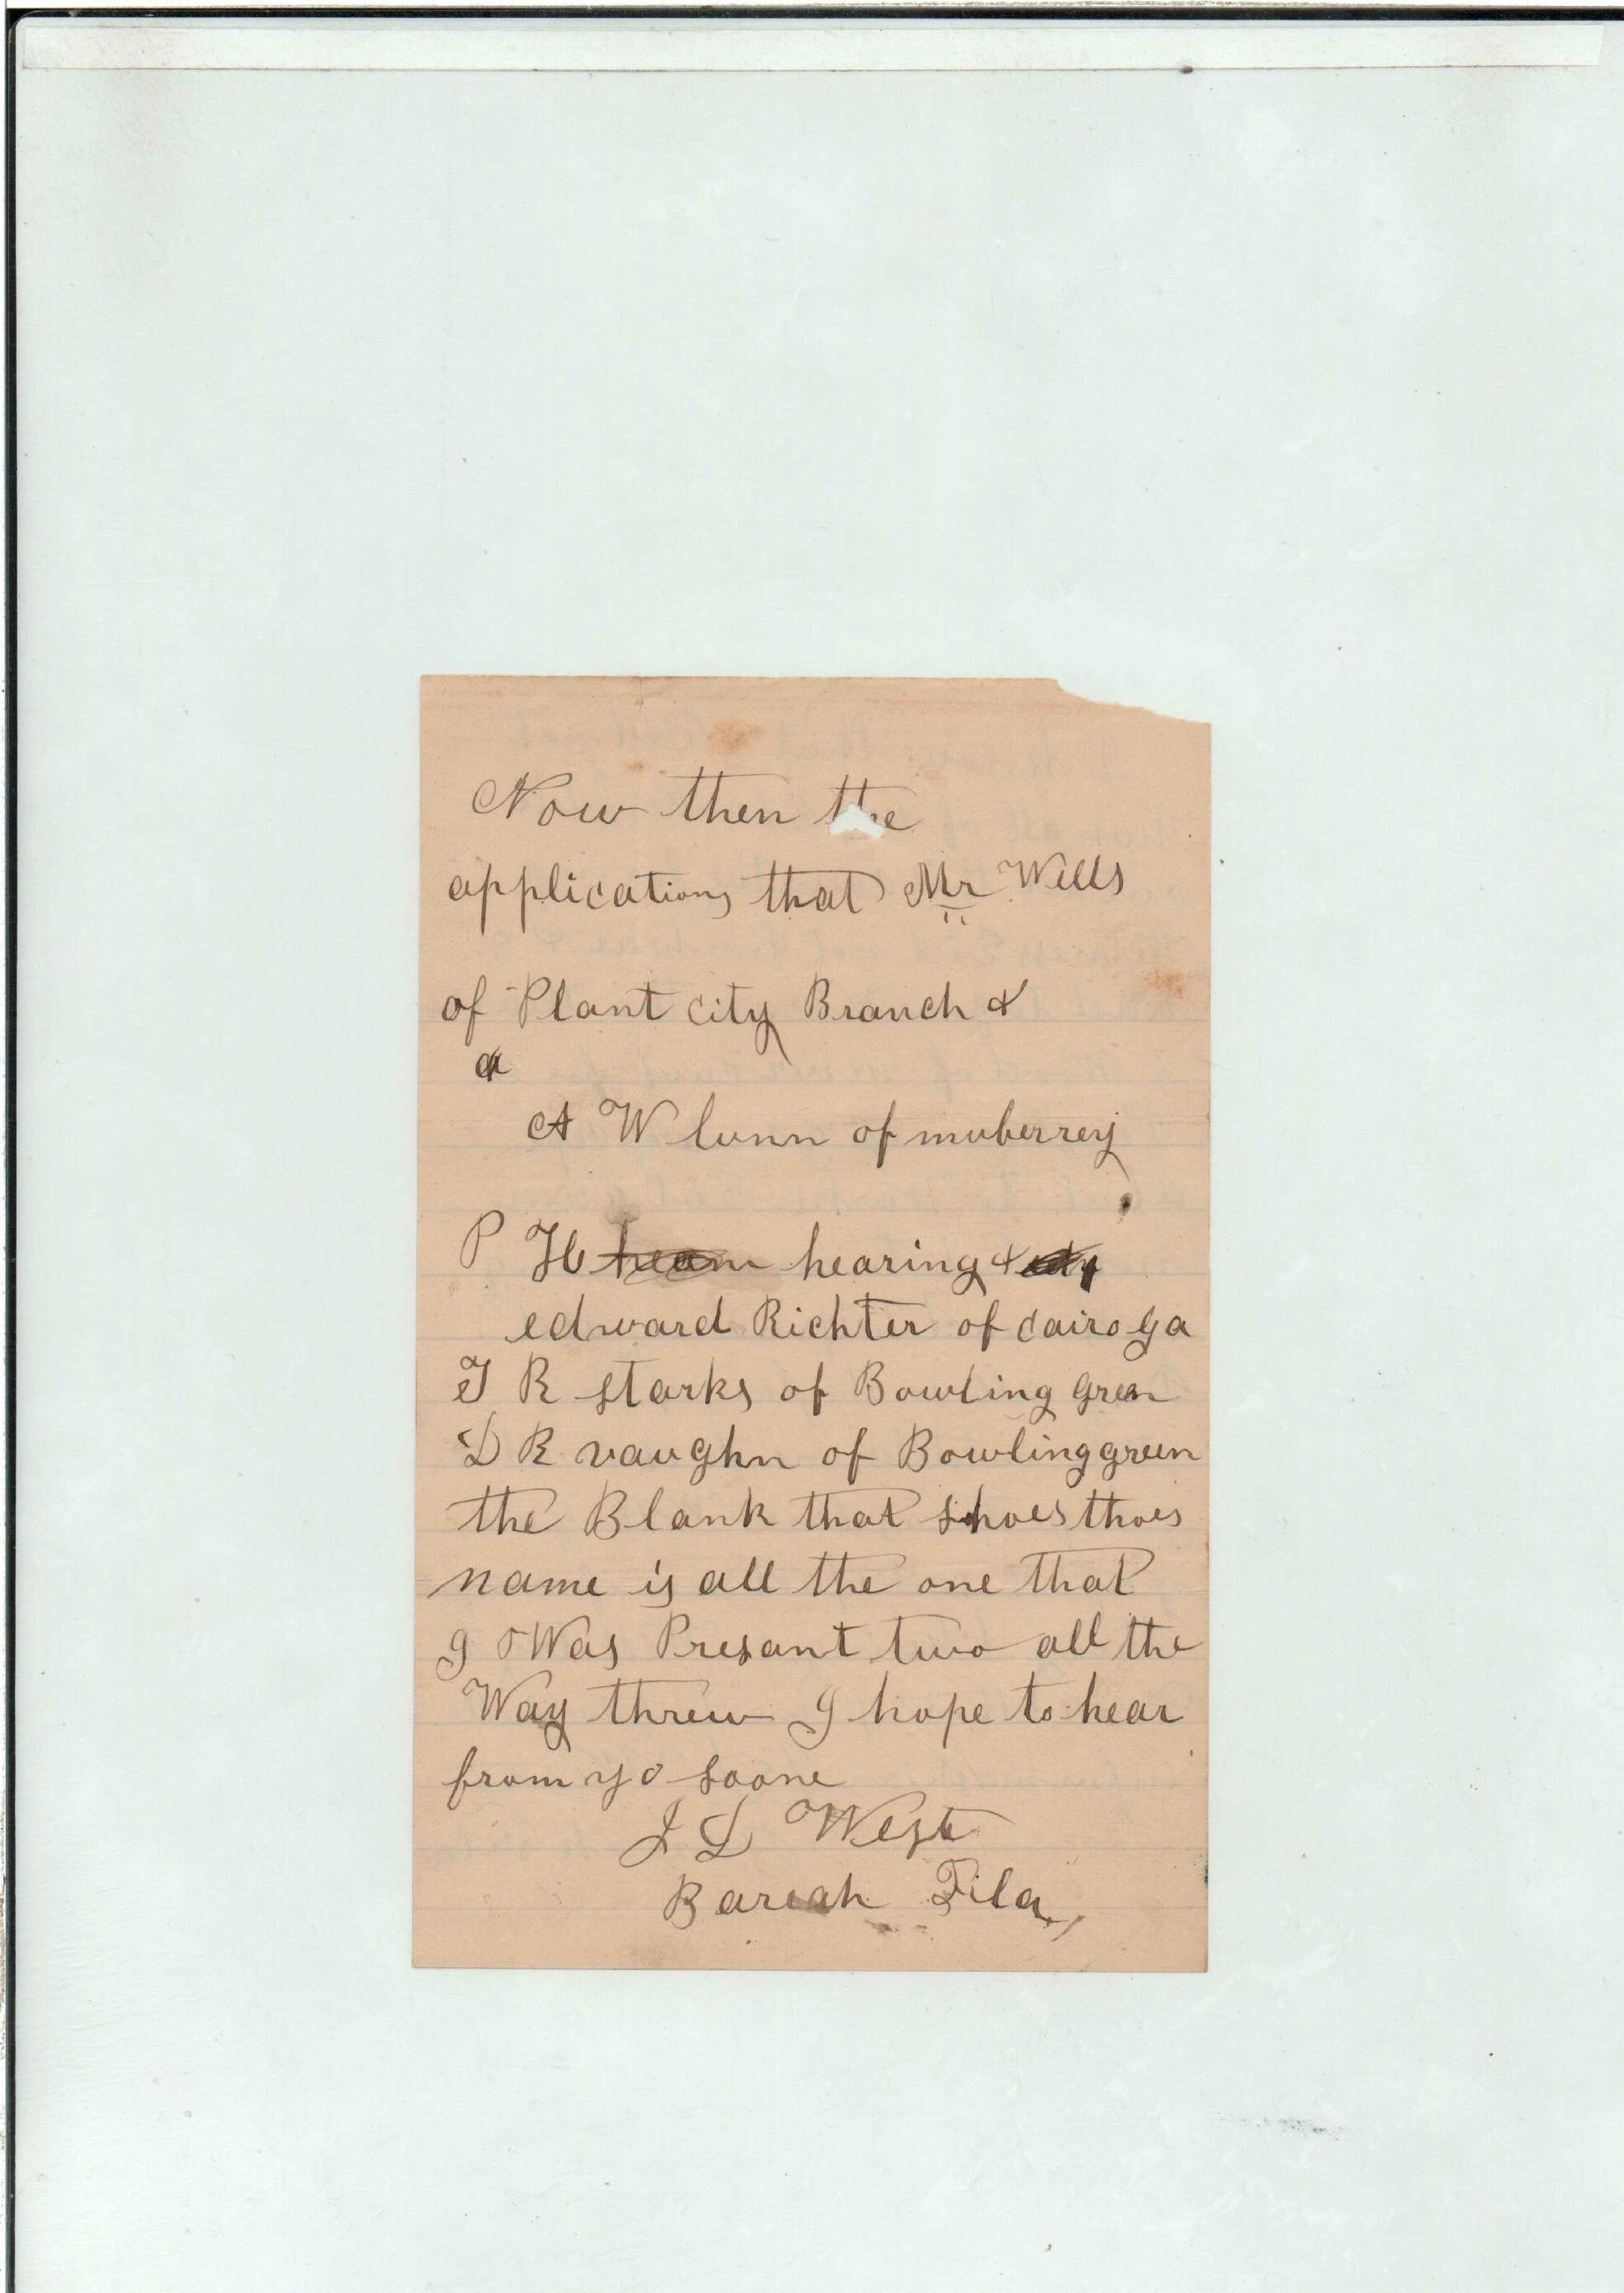 Now then the
applications that Mr Wills
of Plant city Branch &
a
A W lunn of muberrey
P H hearn hearing &
edward Richter of cairo ga
T R starks of Bowling green
D R vaughn of Bowling green
the Blank that shoes thoes
name is all the one that
I Was Presant two all the
Way threw I hope to hear
from yo soone
J L West
Bareah Fila,